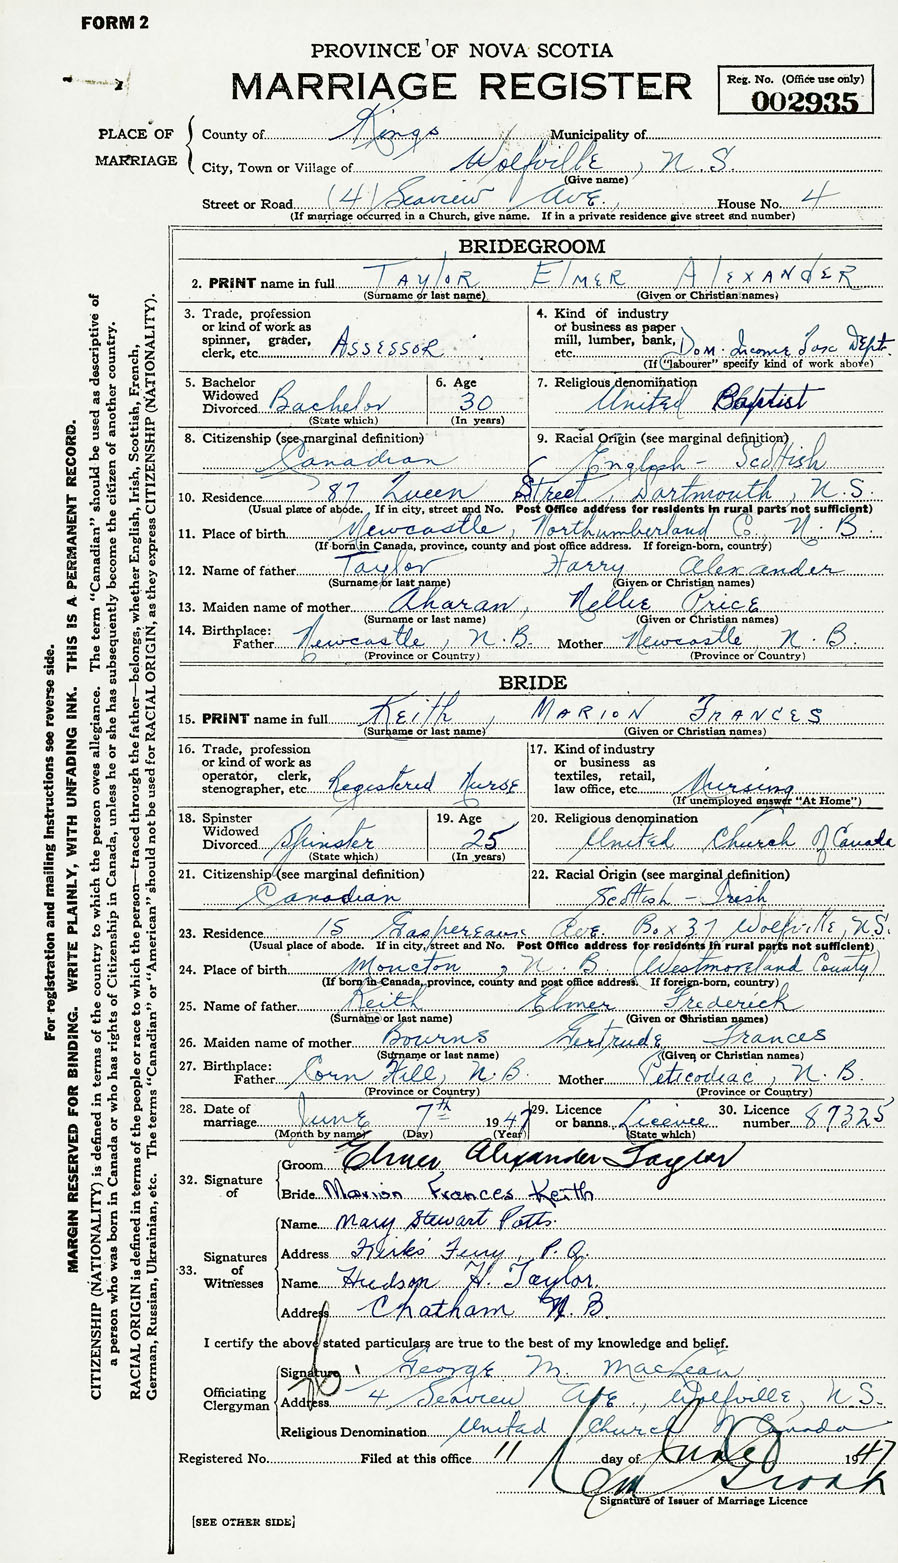 FORM 2
PROVINCE OF NOVA SCOTIA
MARRIAGE REGISTER
Reg. No. (Office use only)
002935
PLACE OF MARRIAGE
County of Kings Municipality of
City, Town or Village of Wolfville, N.S.
(Give name)
Street or Road (4) Seaview Ave. House No. 4
(If marriage occurred in a Church, give name. If in a private residence give street and number)
BRIDEGROOM
2. PRINT name in full TAYLOR ELMER ALEXANDER
(Surname or last name) (Given or Christian names)
3. Trade, profession or kind of work as spinner, grader, clerk, etc. ASSESSOR
4. Kind of industry or business as paper mill, lumber, bank, etc. Dom. Income Tax Dept.
(If "labourer" specify kind of work above)
5. Bachelor Widowed Divorced Bachelor
(State which)
6. Age 30
(In years)
7. Religious denomination United Baptist
8. Citizenship (see marginal definition) Canadian
9. Racial Origin (see marginal definition) English - Scottish
10. Residence 87 Queen Street, Dartmouth, N.S.
(Usual place of abode. If in city, street and No. Post Office address for residents in rural parts not sufficient)
11. Place of birth Newcastle, Northumberland Co. N.B.
(If born in Canada, province, county and post office address. If foreign-born, country)
12. Name of father Taylor Harry Alexander
(Surname or last name) (Given or Christian names)
13. Maiden name of mother Aharan, Nellie Price
(Surname or last name) (Given or Christian names)
14. Birthplace: Father Newcastle, N.B. Mother Newcastle N.B.
(Province or Country) (Province or Country)
BRIDE
15. PRINT name in full KEITH, MARION FRANCES
(Surname or last name) (Given or Christian names)
16. Trade, profession or kind of work as operator, clerk, stenographer, etc. Registered Nurse
17. Kind of industry or business as textiles, retail, law office, etc. Nursing
(If unemployed answer "At Home")
18. Spinster Widowed Divorced Spinster
(State which)
19. Age 25
(In years)
20. Religious denomination United Church of Canada
21. Citizenship (see marginal definition) Canadian
22. Racial Origin (see marginal definition) Scottish - Irish
23. Residence 15 Gaspereau Ave. Box 37 Wolfville, N.S.
(Usual place of abode. If in city, street and No. Post Office address for residents in rural parts not sufficient)
24. Place of birth Moncton, N.B. (Westmoreland County)
(If born in Canada, province, county and post office address. If foreign-born, country)
25. Name of father Keith Elmer Frederick
(Surname or last name) (Given or Christian names)
26. Maiden name of mother Bourns Gertrude Frances
(Surname or last name) (Given or Christian names)
27. Birthplace: Father Corn Hill, N.B. Mother Peticodiac, N.B.
(Province or Country) (Province or Country)
28. Date of marriage June 7th 1947
(Month by name) (Day) (Year)
29. Licence or banns Licence
(State which)
30. Licence number 87325
32. Signature of
Groom Elmer Alexander Taylor
Bride Marion Frances Keith
33. Signatures of Witnesses
Name Mary Stewart Potts.
Address Kirk's Ferry, P.Q.
Name Hudson H. Taylor.
Address Chatham N.B.
I certify the above stated particulars are true to the best of my knowledge and belief.
Officiating Clergyman
Signature George M. MacLean
Address 4 Seaview Ave, Wolfville, N.S.
Religious Denomination United Church of Canada
Registered No. Filed at this office 11 day of June 1947
Signature of Issuer of Marriage Licence
[SEE OTHER SIDE]
For registration and mailing instructions see reverse side.
MARGIN RESERVED FOR BINDING. WRITE PLAINLY, WITH UNFADING INK. THIS IS A PERMANENT RECORD.
CITIZENSHIP (NATIONALITY) is defined in terms of the country to which the person owes allegiance. The term "Canadian" should be used as descriptive of
a person who was born in Canada or who has rights of Citizenship in Canada, unless he or she has subsequently become the citizen of another country.
RACIAL ORIGIN is defined in terms of the people or race to which the person—traced through the father—belongs, whether English, Irish, Scottish, French,
German, Russian, Ukrainian, etc. The terms "Canadian" or "American" should not be used for RACIAL ORIGIN, as they express CITIZENSHIP (NATIONALITY).